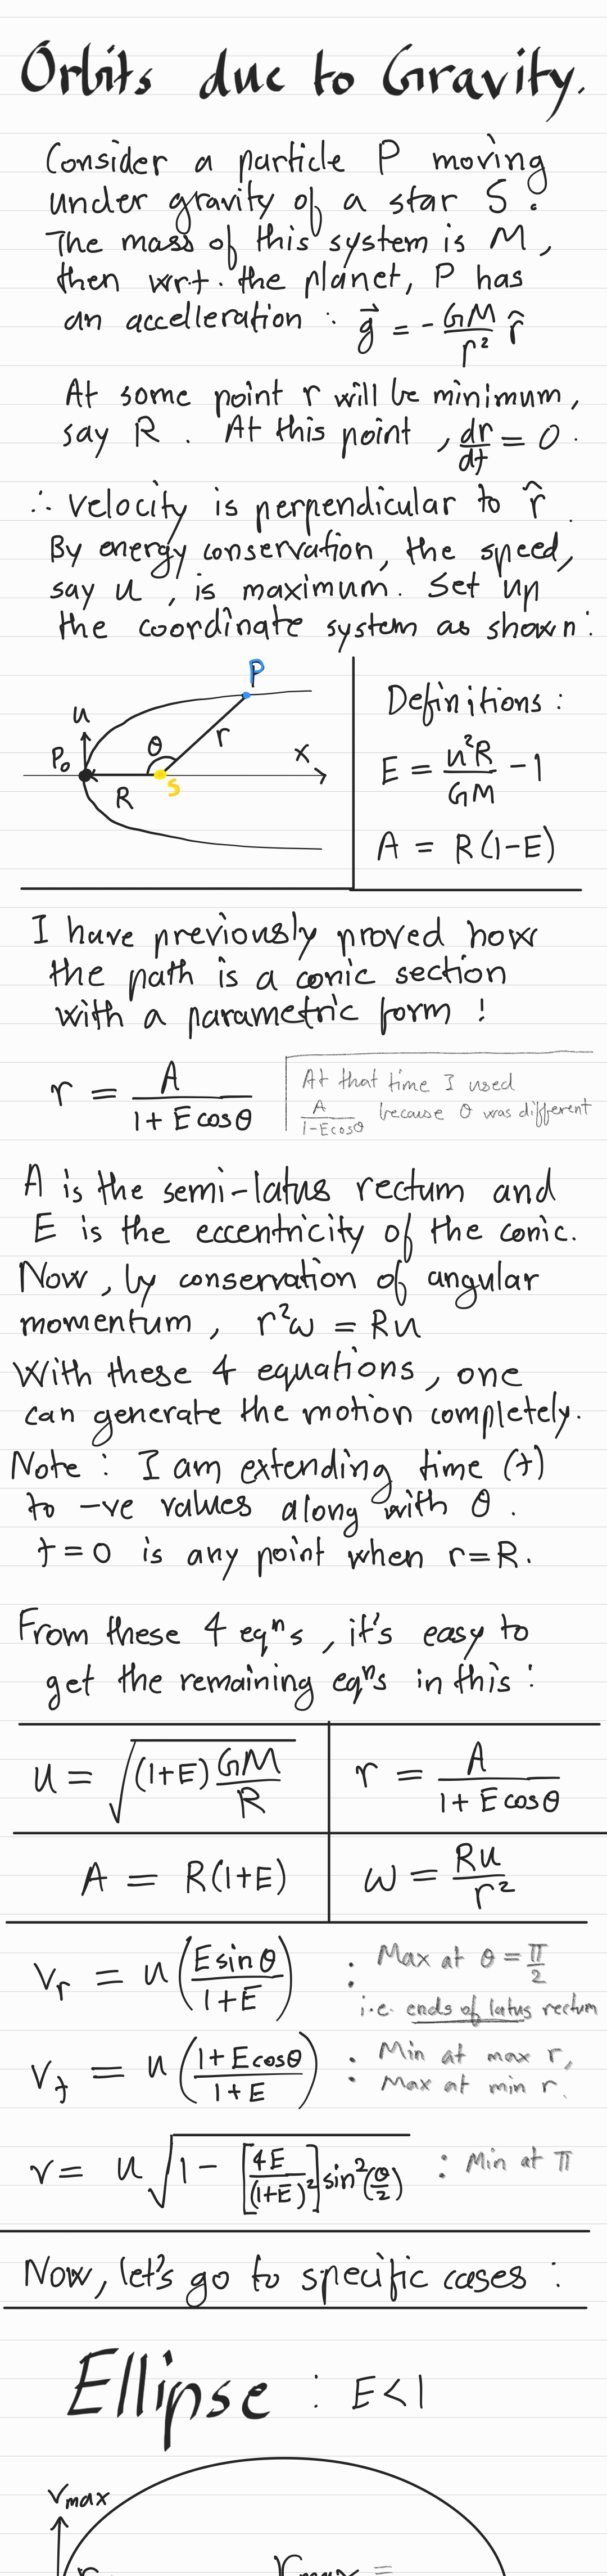 Orbits due to Gravity.
Consider a particle P moving
under gravity of a star S.
The mass of this system is M,
then wrt. the planet, P has
an accelleration : g⃗ = - GM/r² r̂
At some point r will be minimum,
say R. At this point, dr/dt = 0.
∴ velocity is perpendicular to r̂.
By energy conservation, the speed,
say u, is maximum. Set up
the coordinate system as shown:
P
u
P₀
θ
r
x
S
R
Definitions :
E = u²R/GM - 1
A = R(1-E)
I have previously proved how
the path is a conic section
with a parametric form!
r = A/(1 + E cosθ)
At that time I used
A/(1-Ecosθ) because θ was different
A is the semi-latus rectum and
E is the eccentricity of the conic.
Now, by conservation of angular
momentum, r²ω = Ru
With these 4 equations, one
can generate the motion completely.
Note : I am extending time (t)
to -ve values along with θ.
t=0 is any point when r=R.
From these 4 eqⁿs, it's easy to
get the remaining eqⁿs in this :
u = √((1+E) GM/R)
r = A/(1 + E cosθ)
A = R(1+E)
ω = Ru/r²
vᵣ = u (E sin θ/(1+E)) : Max at θ = π/2
i.e. ends of latus rectum
vₜ = u ((1+E cosθ)/(1+E)) : Min at max r,
Max at min r.
v = u √(1 - [4E/(1+E)²] sin²(θ/2)) : Min at π
Now, let's go to specific cases :
Ellipse : E<1
vmax